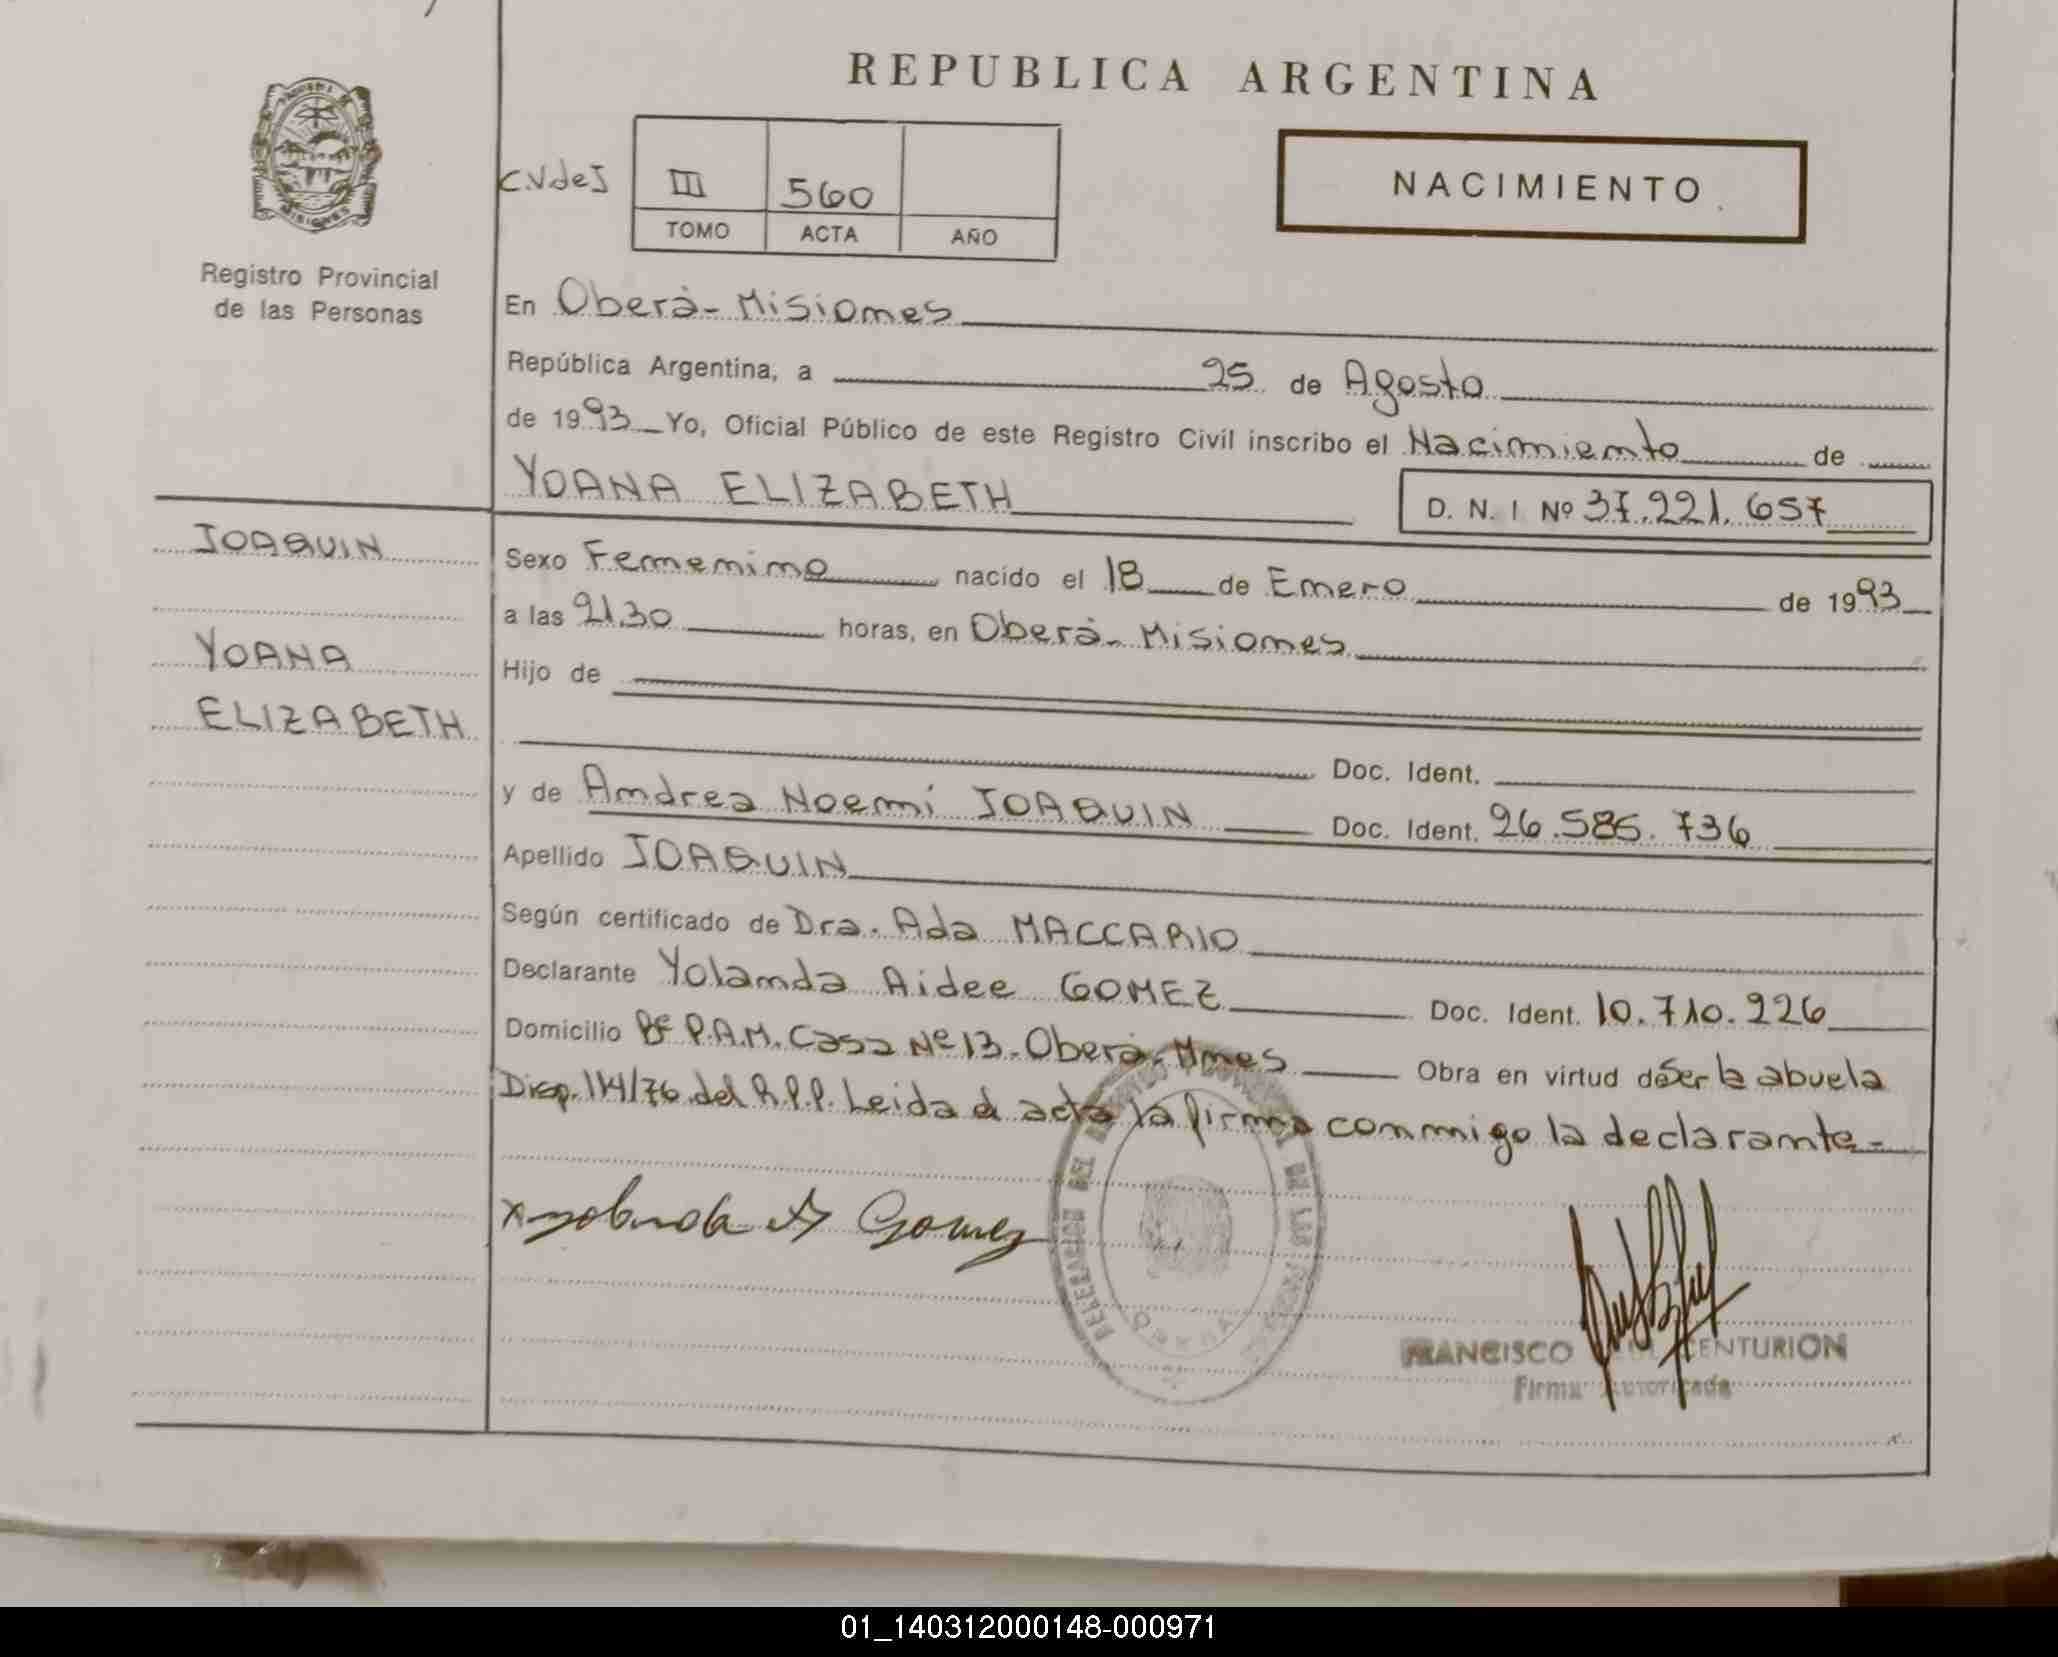 REPUBLICA ARGENTINA
C.VdeS
III 560
TOMO ACTA AÑO
NACIMIENTO
MISIONES
Registro Provincial
de las Personas
En Oberá - Misiones
República Argentina, a 25 de Agosto
de 1993 Yo, Oficial Público de este Registro Civil inscribo el Nacimiento de
YOANA ELIZABETH
D. N. I. Nº 37.221.657
JOAQUIN
YOANA
ELIZABETH
Sexo Femenino nacido el 18 de Enero de 1993
a las 21.30 horas, en Oberá - Misiones
Hijo de
Doc. Ident.
y de Andrea Noemí JOAQUIN Doc. Ident. 26.585.736
Apellido JOAQUIN
Según certificado de Dra. Ada MACCARIO
Declarante Yolanda Aidee GOMEZ Doc. Ident. 10.710.226
Domicilio Bº P.A.M. Casa Nº 13 - Oberá - Mnes Obra en virtud de Ser la abuela
Disp. 114/76 del R.P.P. Leida el acta la firma conmigo la declarante -
x Yolanda A Gomez
DELEGACION DEL
DE LAS
OBERA
FRANCISCO CENTURION
Firma Autorizada
01_140312000148-000971